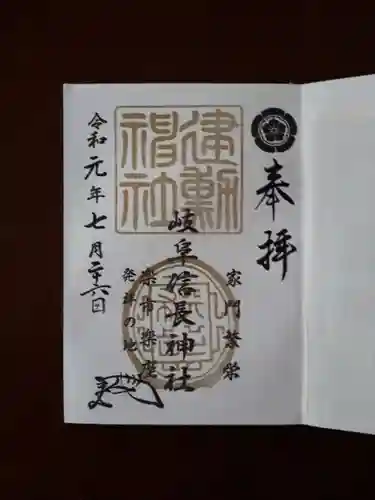 奉拝
建勲
神社
岐阜信長神社
家門繁栄
楽市楽座
発祥の地
令和元年七月二十六日